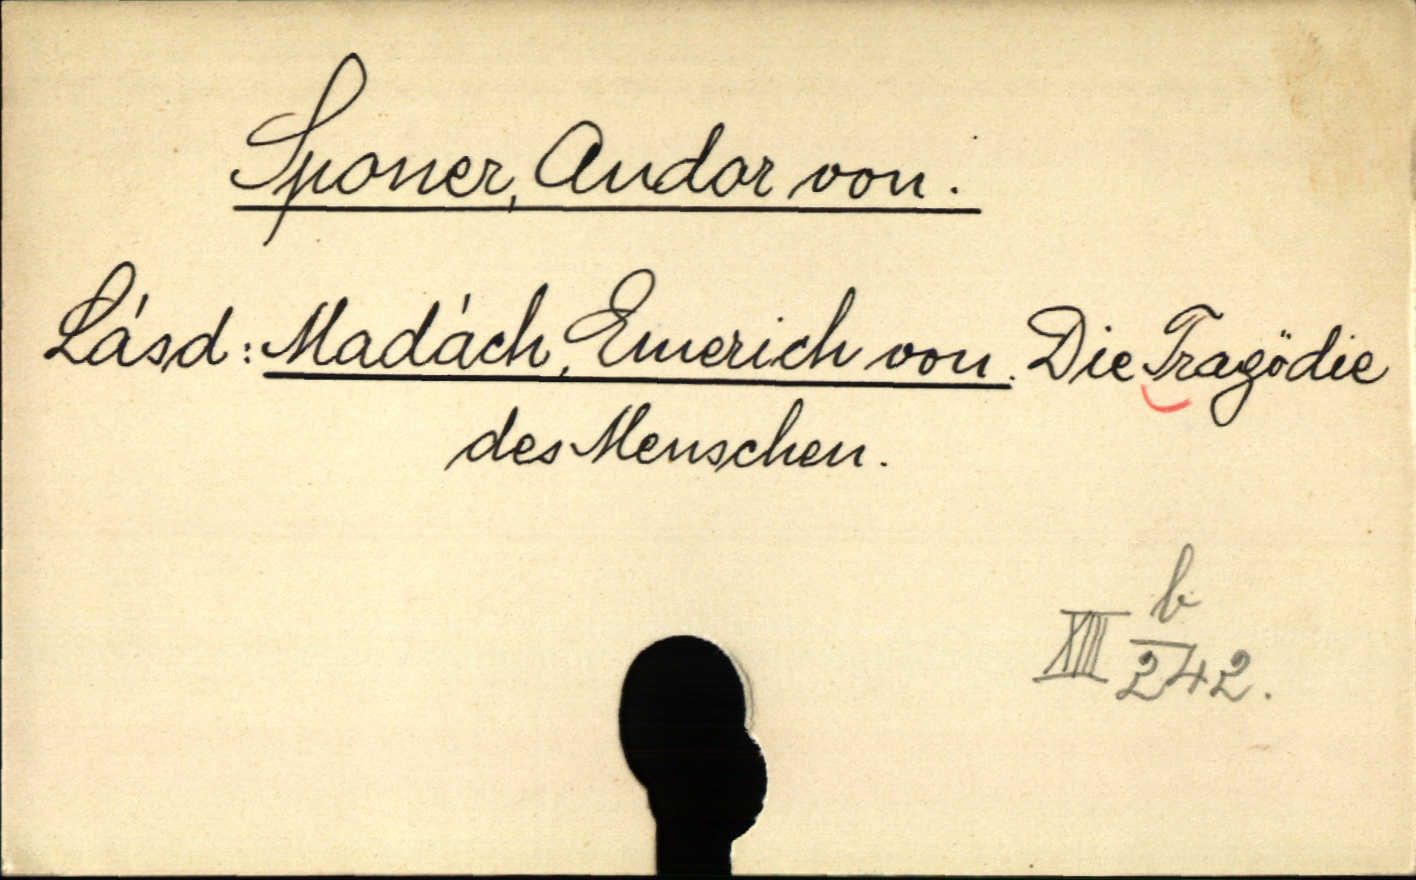 Sponer, Andor von.
Lásd: Madách, Emerich von. Die Tragödie
des Menschen.
b
XIII 242.